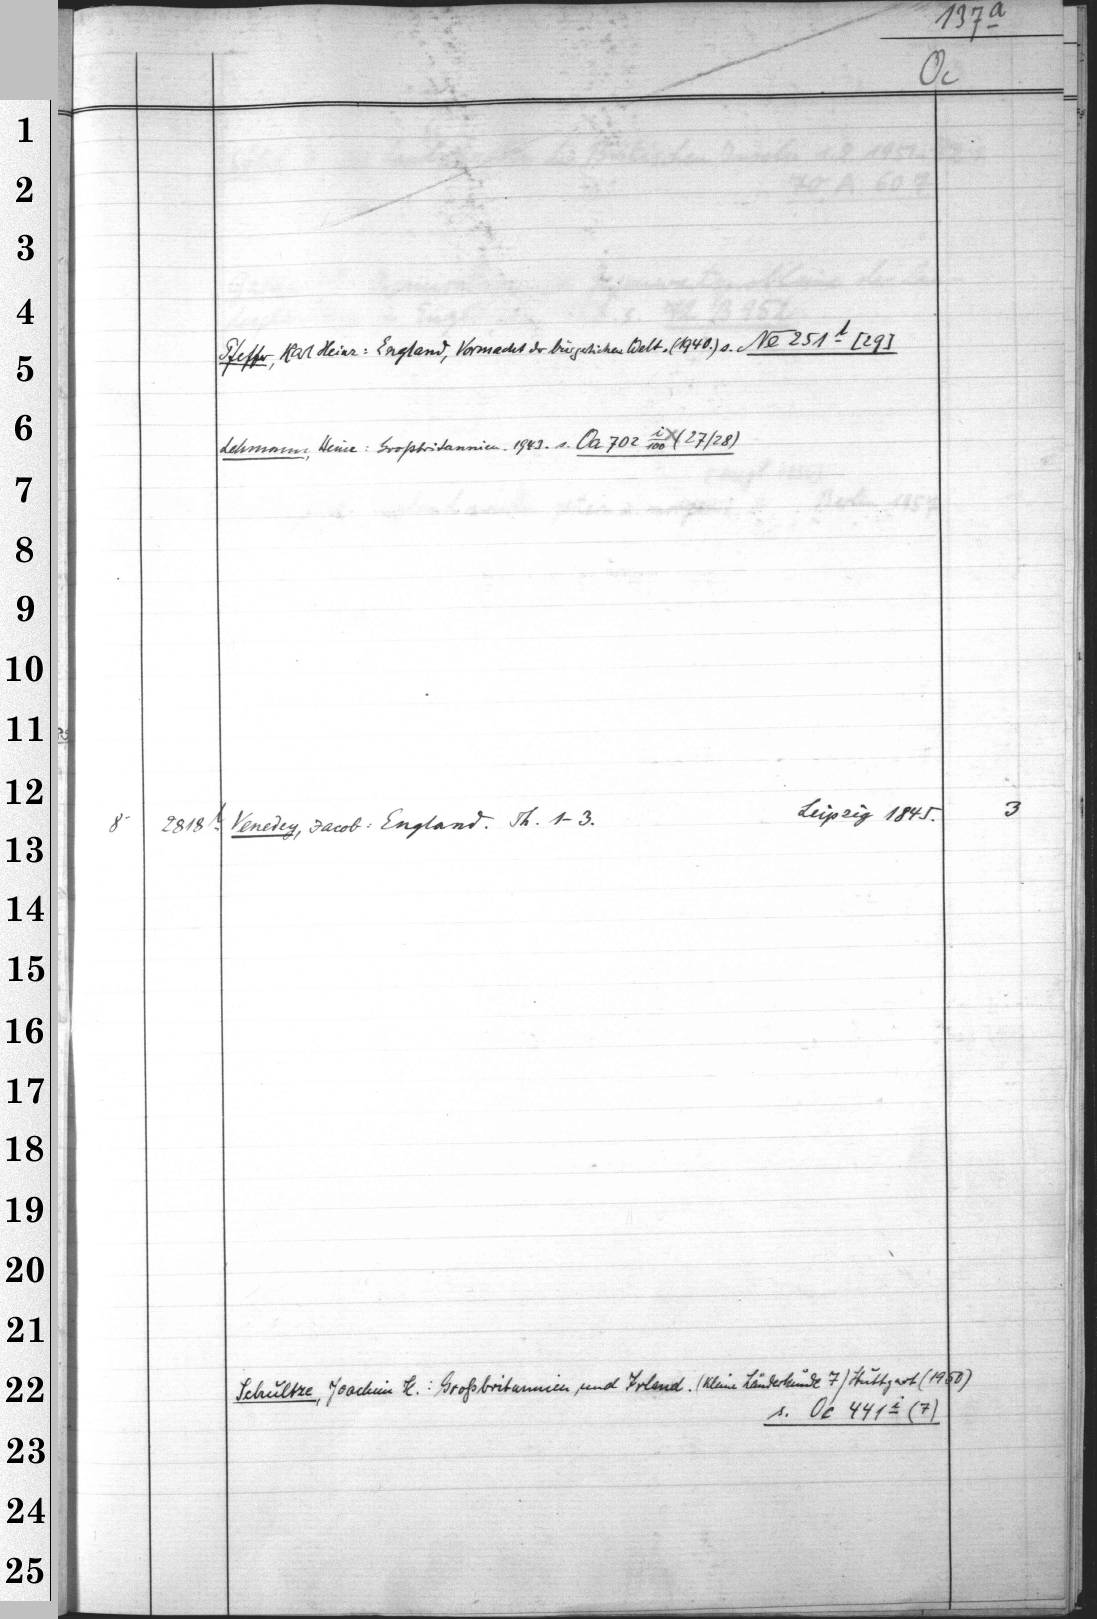 137a
Oc
1
2
3
4
Pfeffer, Karl Heinz: England, Vormacht der bürgerlichen Welt. (1940.) s. Ne 251 t [29]
5
6
Lehmann, Heinr: Großbritannien. 1943. s. Oa 702 i/100 (27/28)
7
8
9
10
11
12
8° 2818 t Venedey, Jacob: England. Th. 1-3. Leipzig 1845. 3
13
14
15
16
17
18
19
20
21
22
Schultze, Joachim H.: Großbritannien und Irland. (Kleine Länderkunde 7) Stuttgart (1950)
s. Oc 441 i (7)
23
24
25